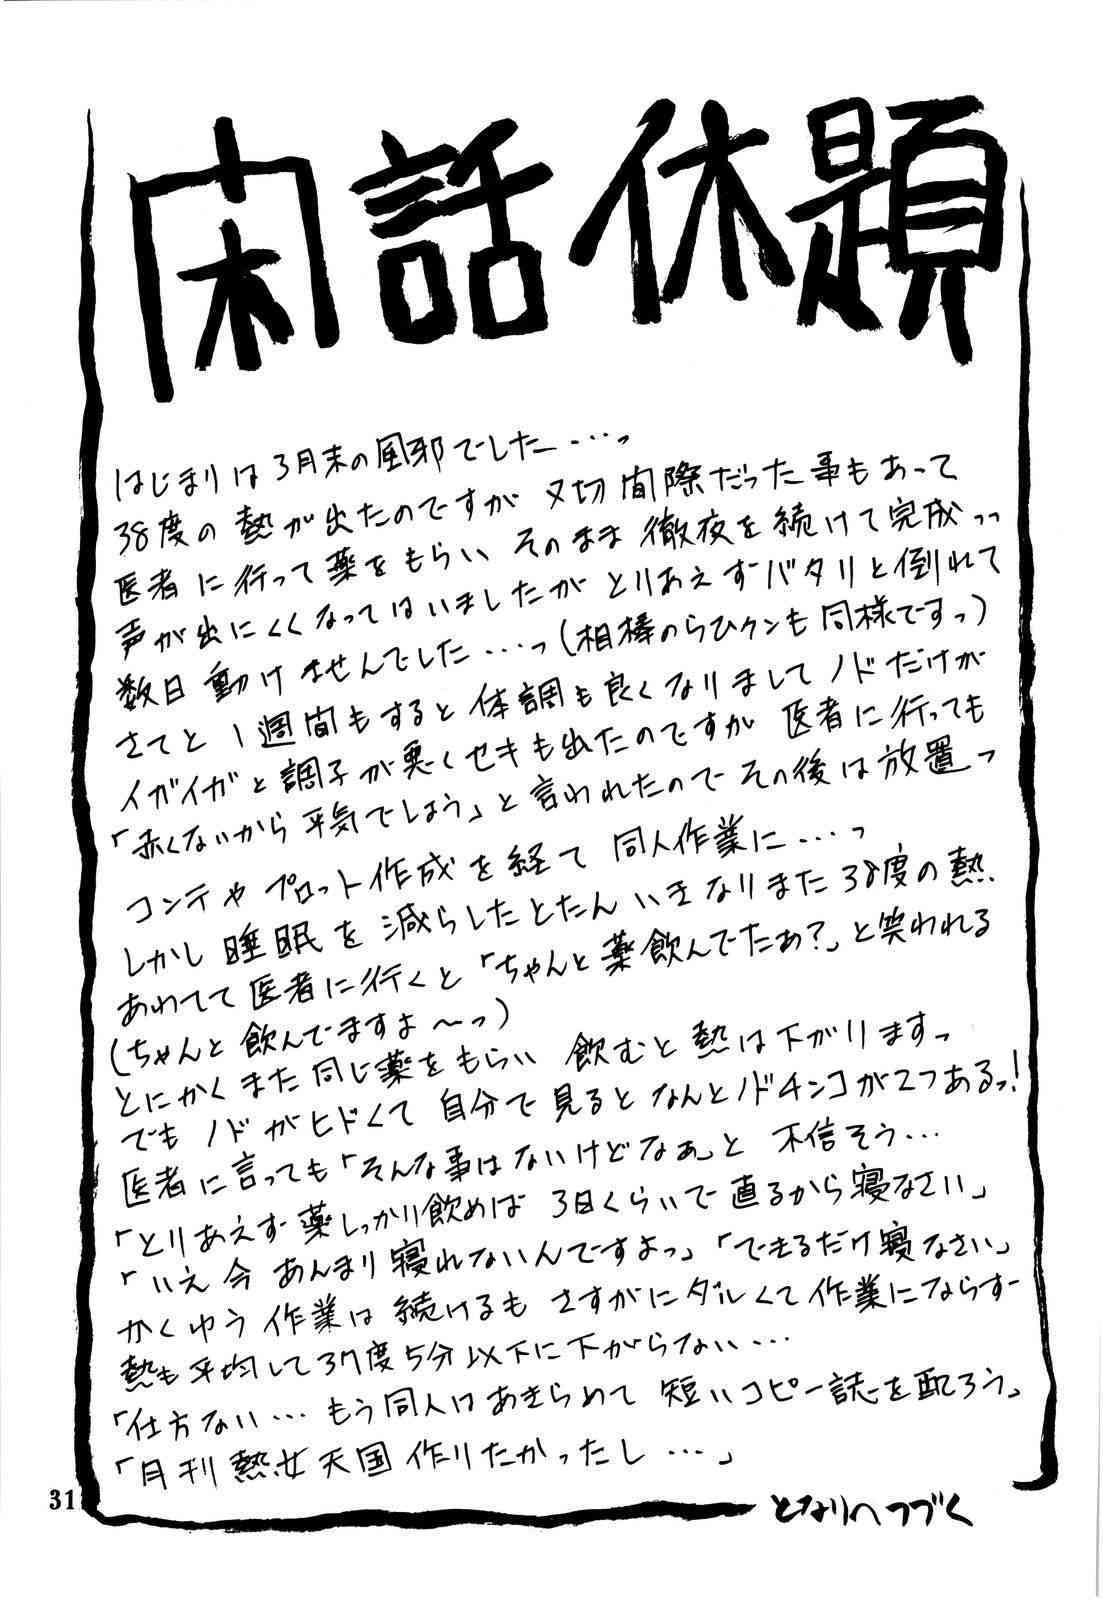 閑話休題
はじまりは3月末の風邪でした…っ
38度の熱が出たのですが〆切間際だった事もあって
医者に行って薬をもらい そのまま徹夜を続けて完成っっ
声が出にくくなってはいましたが とりあえずバタリと倒れて
数日動けませんでした…っ(相棒のらひクンも同様ですっ)
さてと 1週間もすると体調も良くなりまして ノドだけが
イガイガと調子が悪くセキも出たのですが 医者に行っても
「赤くないから平気でしょう」と言われたので その後は放置っ
コンテや プロット作成を経て 同人作業に…っ
しかし睡眠を減らしたとたん いきなりまた38度の熱
あわてて医者に行くと「ちゃんと薬飲んでたぁ?」と笑われる
(ちゃんと飲んでますよ〜っ)
とにかくまた同じ薬をもらい 飲むと熱は下がりますっ
でも ノドがヒドくて 自分で見るとなんとノドチンコが2つあるっ!
医者に言っても「そんな事はないけどなぁ」と 不信そう…
「とりあえず薬しっかり飲めば 3日くらいで直るから寝なさい」
「いえ今あんまり寝れないんですよっ」「できるだけ寝なさい」
かくゆう作業は続けるも さすがにダルくて作業にならず
熱も平均して37度5分以下に下がらない…
「仕方ない…もう同人はあきらめて 短いコピー誌を配ろう」
「月刊熱女天国作りたかったし…」
となりへつづく
31